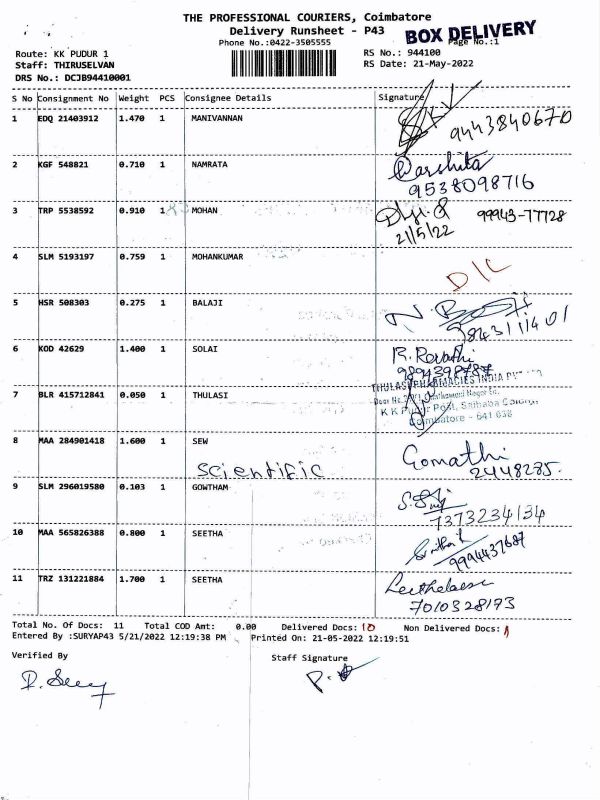 THE PROFESSIONAL COURIERS, Coimbatore
Delivery Runsheet - P43
BOX DELIVERY
Phone No.:0422-3505555
Page No.:1
Route: KK PUDUR 1
RS No.: 944100
Staff: THIRUSELVAN
RS Date: 21-May-2022
DRS No.: DCJB94410001
S No Consignment No Weight PCS Consignee Details Signature
1 EDQ 21403912 1.470 1 MANIVANNAN
9443840670
2 KGF 548821 0.710 1 NAMRATA Varshita
9538098716
3 TRP 5538592 0.910 1 MOHAN 99943-77728
21/5/22
4 SLM 5193197 0.759 1 MOHANKUMAR
D/L
5 HSR 508303 0.275 1 BALAJI
9843111401
6 KOD 42629 1.400 1 SOLAI R. Revathi
9894398787
THULASI PHARMACIES INDIA
7 BLR 415712841 0.050 1 THULASI
K K Pudur Post, Saibaba Colony,
Coimbatore - 641 038
8 MAA 284901418 1.600 1 SEW Gomathi
Scientific 2448285.
9 SLM 296019580 0.103 1 GOWTHAM
7373234134
10 MAA 565826388 0.800 1 SEETHA
9994437687
11 TRZ 131221884 1.700 1 SEETHA
7010328173
Total No. Of Docs: 11 Total COD Amt: 0.00 Delivered Docs: 10 Non Delivered Docs: 1
Entered By :SURYAP43 5/21/2022 12:19:38 PM Printed On: 21-05-2022 12:19:51
Verified By Staff Signature